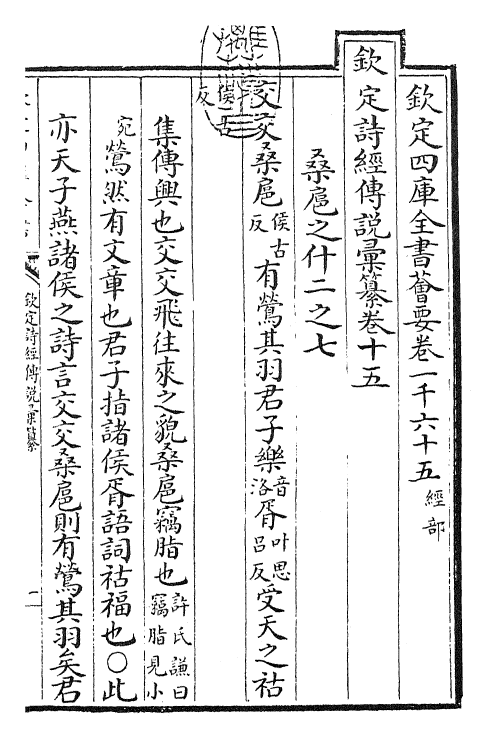 欽定四庫全書薈要卷一千六十五 經部
欽定詩經傳說彙纂卷十五
桑扈之什二之七
交交桑扈侯古反有鶯其羽君子樂音洛胥叶思呂反受天之祜
侯古反
集傳興也交交飛往來之貌桑扈竊脂也許氏謙曰竊脂見小
宛鶯然有文章也君子指諸侯胥語詞祜福也○此
亦天子燕諸侯之詩言交交桑扈則有鶯其羽矣君
欽定詩經傳說彙纂